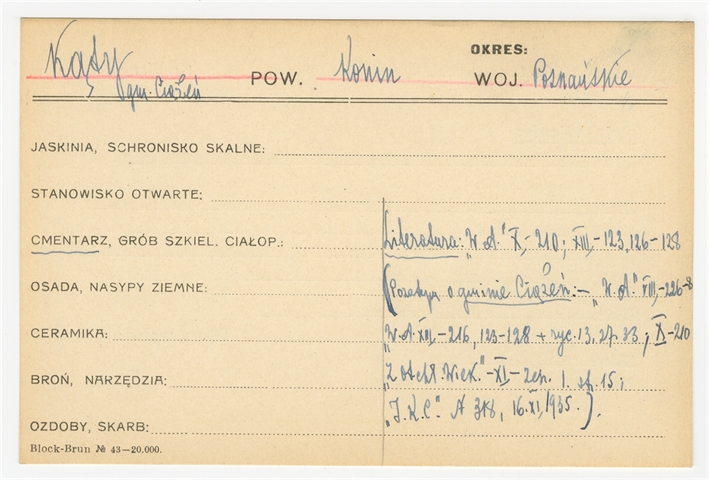 Kąty
gm. Ciążeń
POW. Konin
OKRES:
WOJ. Poznańskie
JASKINIA, SCHRONISKO SKALNE:
STANOWISKO OTWARTE:
CMENTARZ, GRÓB SZKIEL. CIAŁOP.:
Literatura: „W.A." X,-210; XIII,-123, 126-128
OSADA, NASYPY ZIEMNE:
(Pozatym o gminie Ciążeń:- „W.A." VIII,-226-8
CERAMIKA:
„W.A. -216, 123-128 + ryc. 13, 27, 33; X-210
BROŃ, NARZĘDZIA:
„Z otchł. Wiek."-XI- zesz. 1. st. 15;
„I.K.C." 318, 16.XI,1935.).
OZDOBY, SKARB:
Block-Brun № 43—20.000.